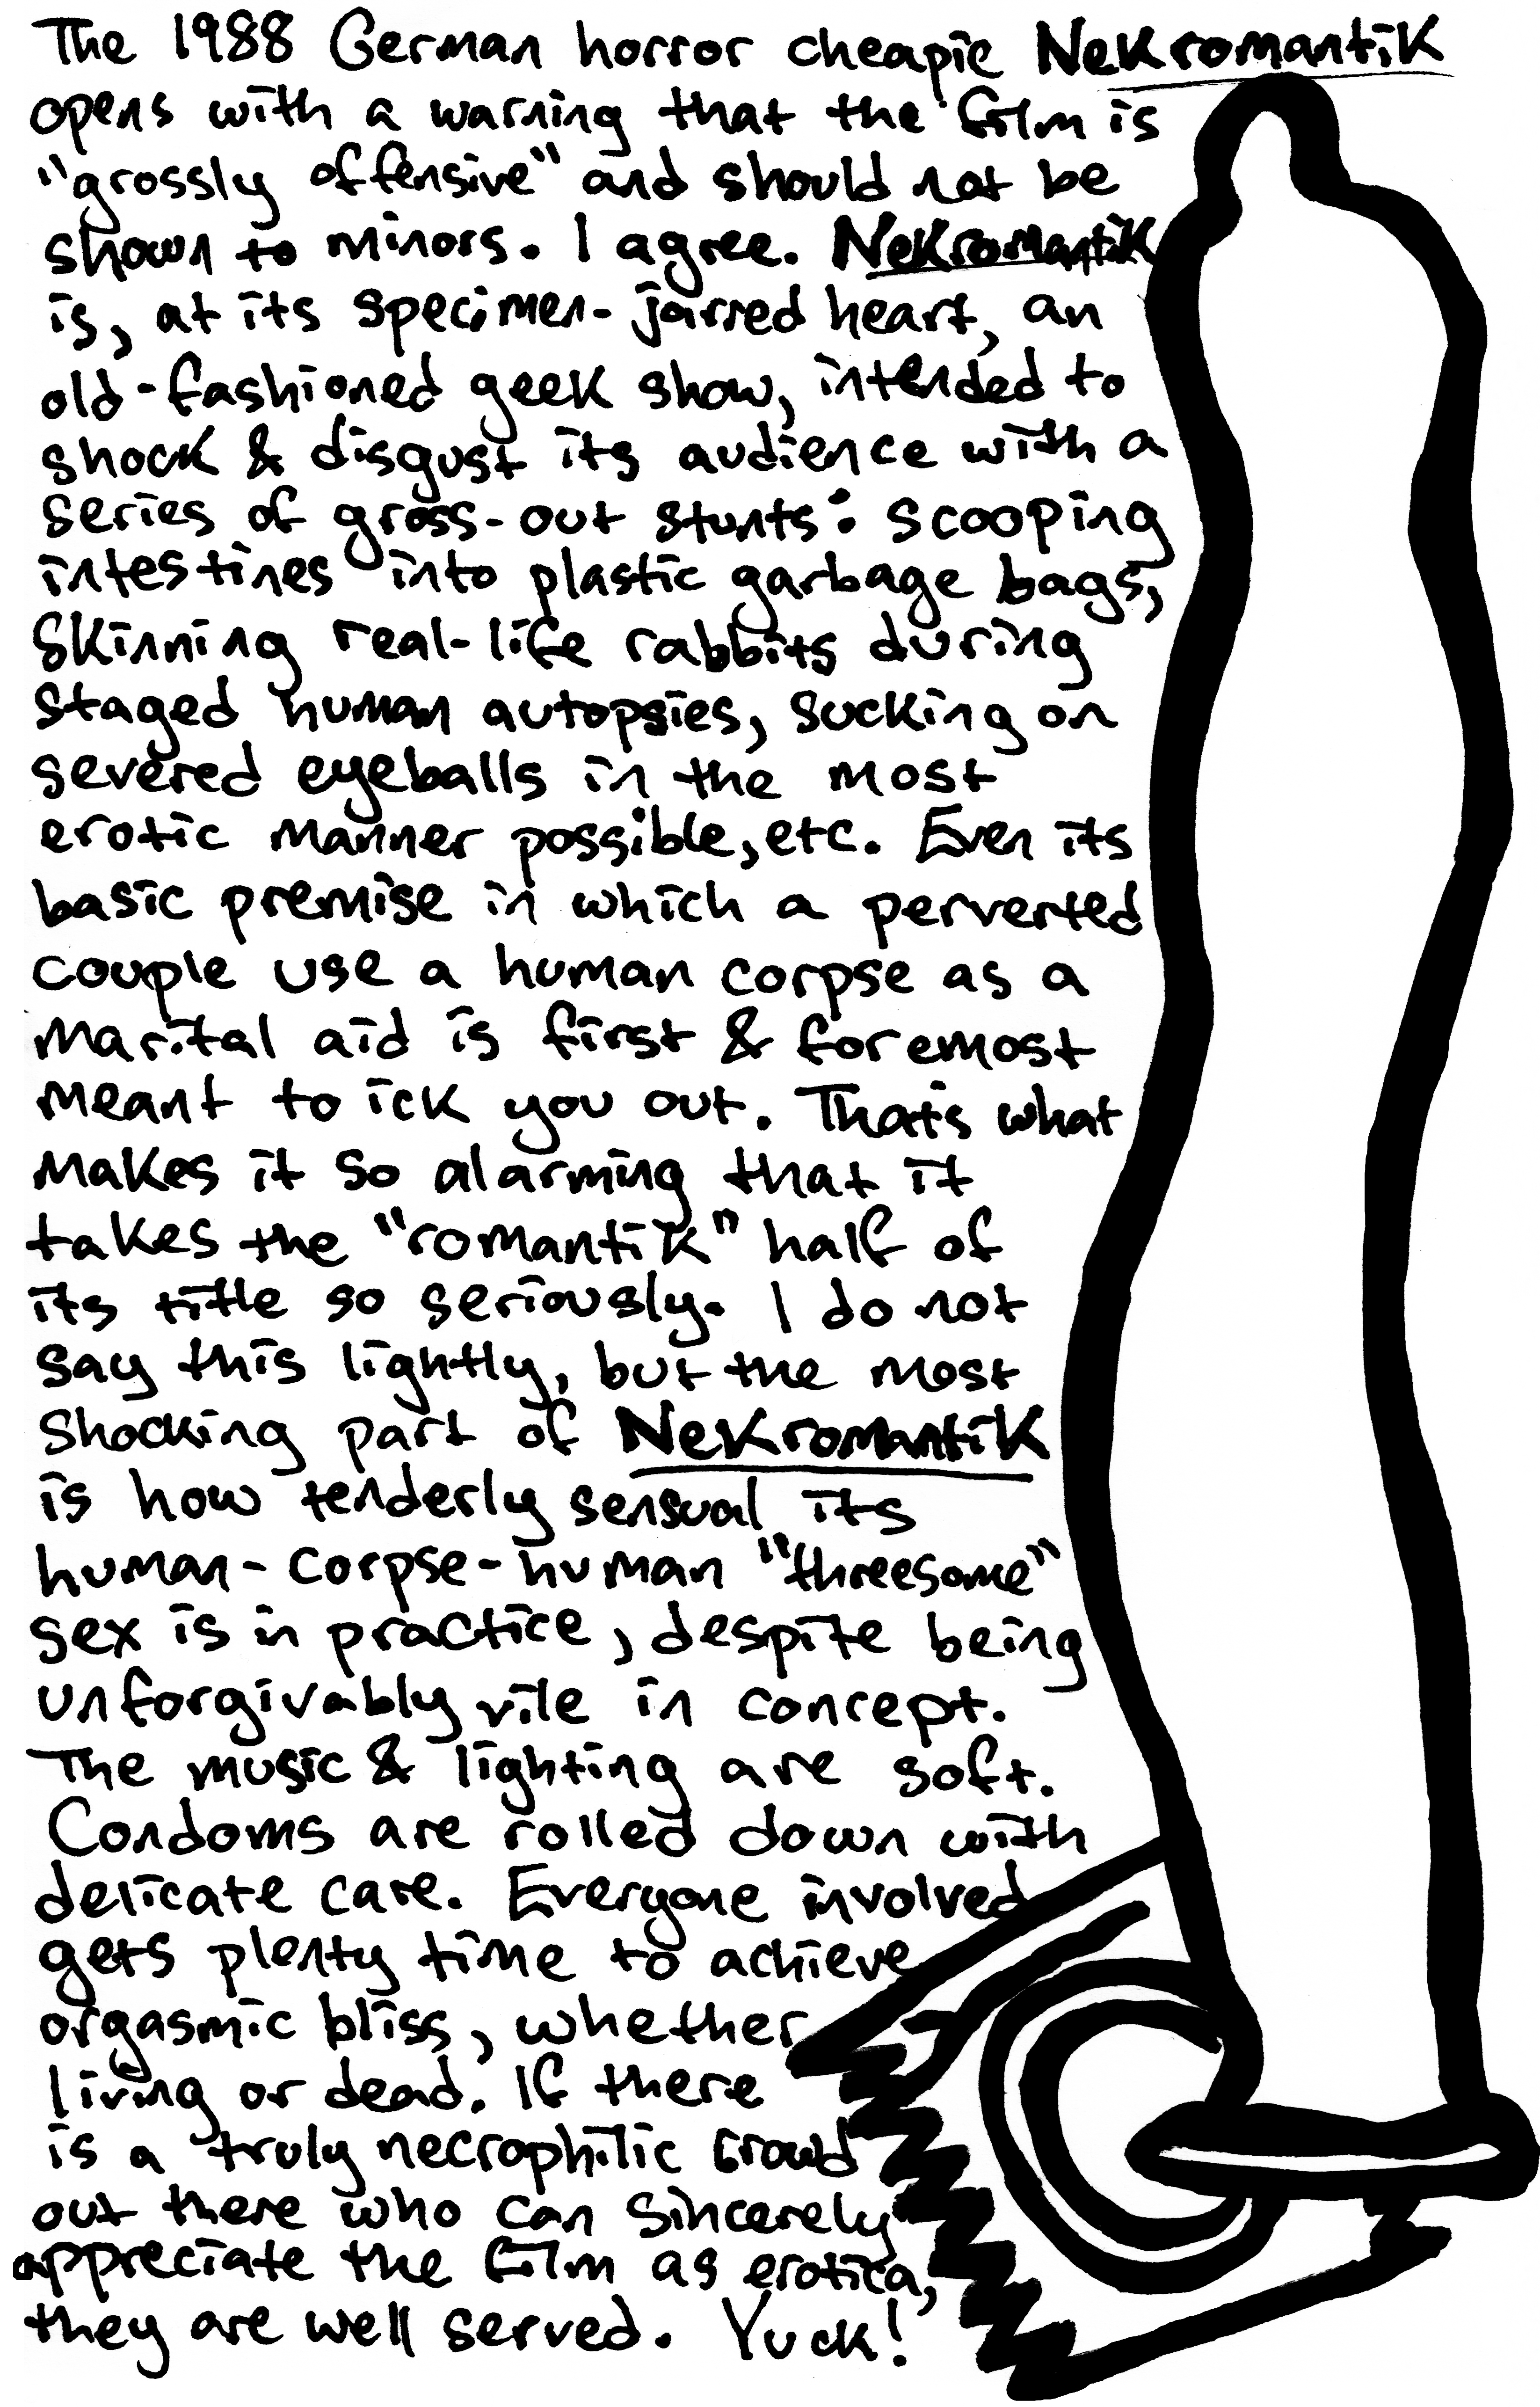 The 1988 German horror cheapie Nekromantik
opens with a warning that the film is
"grossly offensive" and should not be
shown to minors. I agree. Nekromantik
is, at its specimen-jarred heart, an
old-fashioned geek show, intended to
shock & disgust its audience with a
series of gross-out stunts: scooping
intestines into plastic garbage bags,
skinning real-life rabbits during
staged human autopsies, sucking on
severed eyeballs in the most
erotic manner possible, etc. Even its
basic premise in which a perverted
couple use a human corpse as a
marital aid is first & foremost
meant to ick you out. That's what
makes it so alarming that it
takes the "romantik" half of
its title so seriously. I do not
say this lightly, but the most
shocking part of Nekromantik
is how tenderly sensual its
human-corpse-human "threesome"
sex is in practice, despite being
unforgivably vile in concept.
The music & lighting are soft.
Condoms are rolled down with
delicate care. Everyone involved
gets plenty time to achieve
orgasmic bliss, whether
living or dead. If there
is a truly necrophilic crowd
out there who can sincerely
appreciate the film as erotica,
they are well served. Yuck!